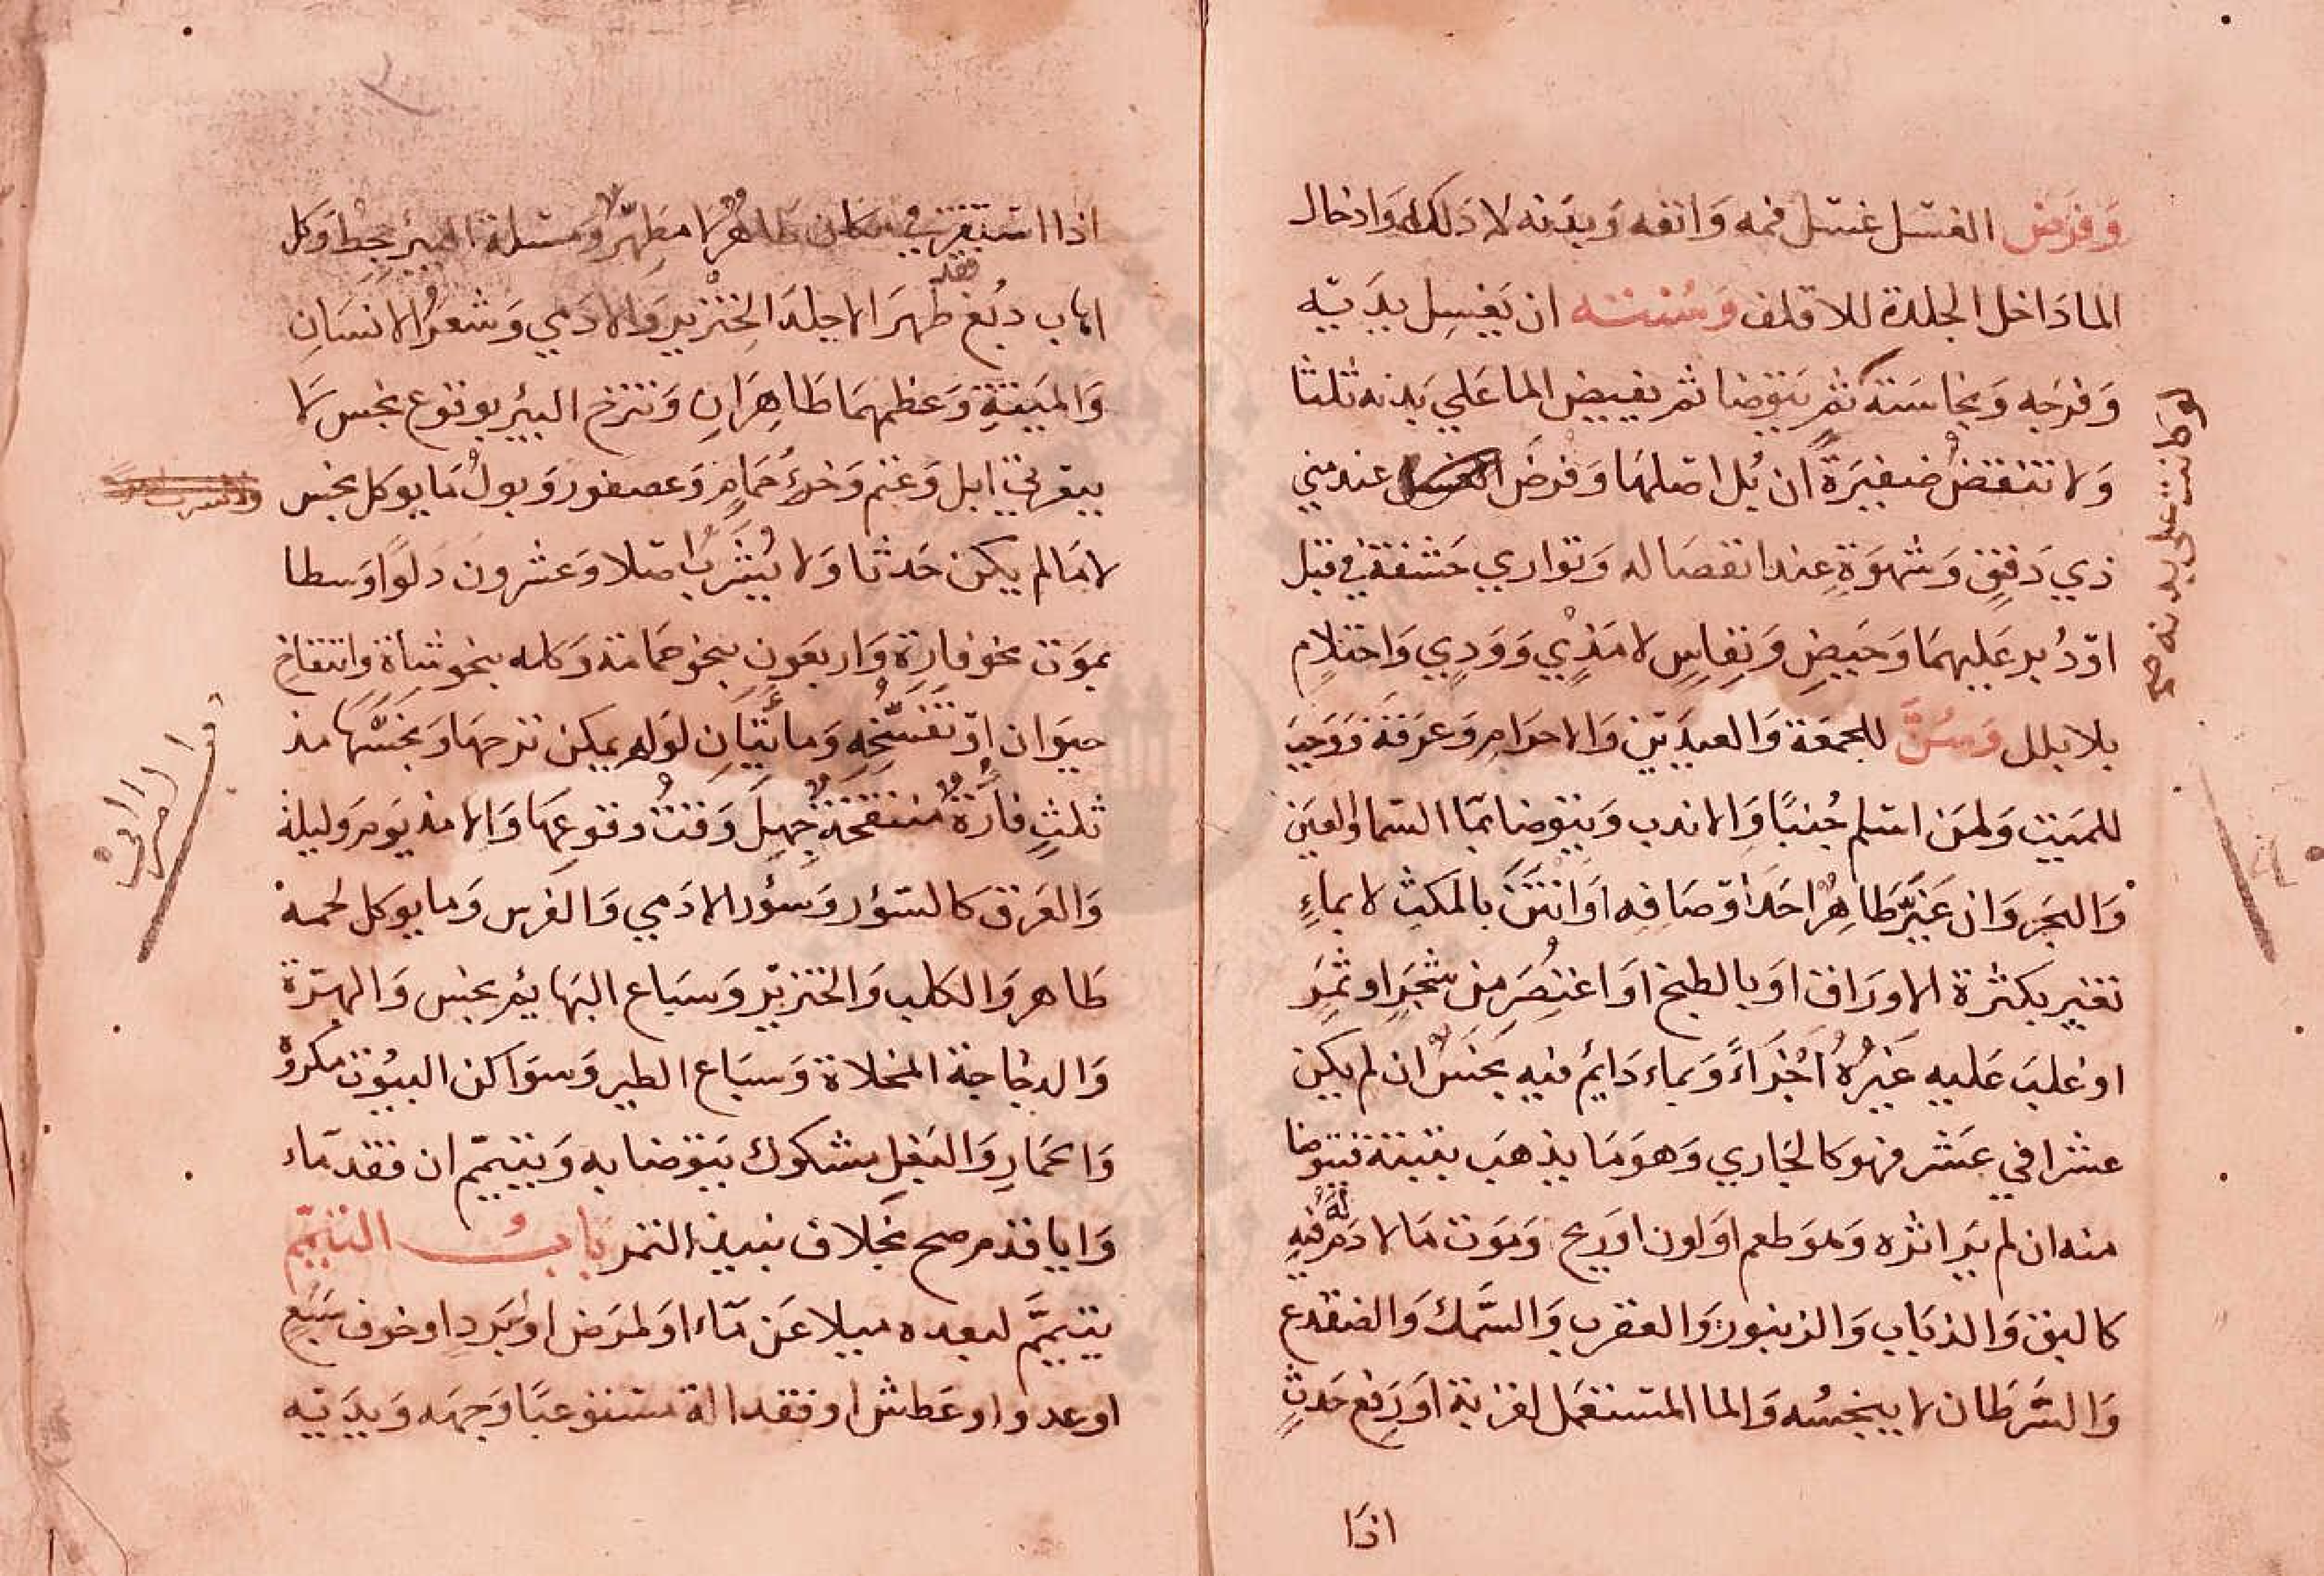 وَفَرَضُ الغسْل غسْل فمه وَانفه وَبدَنه لا دَلكه وَادخال
الما دَاخل الجلدة للاقلف وَسُنته ان يَغسِل يدَيْه
وَفرجَه وَنجاسَتهُ ثم يَتوَضا ثم يفيض الما عَلي بَدَنه ثلثا
لو كانت على بدنه صح
وَلا تنقضُ ضفيرَةً ان بُل اصلهَا وَفرضَ الغسل عند مني
ذي دَفقٍ وَشهوَةٍ عند انفصَاله وَتواري حَشفة في قبل
اوْ دُبر عَليهمَا وَحَيضٍ وَنِفاسٍ لا مَذْيٍ وَوَديٍ وَاحتلامٍ
بلا بلل وَسُنَّ للجمعَة وَالعيدَيْن وَالاحرَامِ وَعَرفَة وَوَجبَ
للمَيّت وَلمَن اسْلم جُنبًا وَالا ندب وَيتوضا بمَا السّما وَالعَين
وَالبَحر وَان غَيَّرَ طَاهِرٌ احَدَ اوْصَافِه اوَ انتنَ بالمَكث لا بماءٍ
تغير بكثرة الاورَاق اوَ بالطبخ اوَ اعتُصِرَ مِن شجَرٍ او ثمَرٍ
اوغلبَ عَليه غَيرُهُ اَجْزَاءً وَبماء دَائم فيه نجَسٌ ان لم يكن
عشرا في عَشر فهوَ كالجَاري وَهوَ مَا يذهَب بتبنة فيتوضا
منه ان لم يَر اثره وَهوَ طعم اوَ لون اوَ ريح وَمَوت مَا لا دَمَ لَهُ فيهِ
كالبق وَالذبَاب وَالزنبور وَالعقرب وَالسَّمَك وَالضفدع
وَالسَّرَطَان لا ينجسُه وَالما المستعمَل لقربة اوَ رَفع حَدَثٍ
اذَا
اذا استقرَّ في مكان طاهرٌ لا مطِهّرٌ وَمسْئلة البئر جحط وَكل
اهاب دُبغ فقد طهرَ الا جلدَ الخنزير وَالادَمي وَشعرُ الانسَانِ
وَالميَتةِ وَعظمهمَا طَاهِرَانِ وَتنزح البئر بوقوع نجس لا
ببعرتي ابل وَغنم وَخرءِ حَمَامٍ وَعصفور وَبولُ مَا يوكل نجس
لا مَا لم يكن حَدثا وَلا يُشرَبُ اصْلا وَعشرون دَلوًا وَسطا
بموَت نحو فارَة وَاربعَون بنحو حمَامة وَكله بنحو شاَة وَانتفاخ
حيوَان اوْ تفسّخِه وَمائتَانِ لوَ لم يمكن نزحهَا وَنجَّسَهَا مذ
ثلثٍ فأرَةٌ منتفخةٌ جُهِلَ وَقتُ وقوعِهَا وَالا مذ يَوم وَليلة
وَالعَرَق كالسّؤر وَسؤر الادَمي وَالفرس وَما يوكل لحمه
طَاهر وَالكلب وَالخنزيْر وَسبَاع البهَايم نجس وَالهرّة
وَالدجَاجة المخلاة وَسبَاع الطير وَسوَاكن البيُوت مكروهْ
وَالحمَارِ وَالبَغلِ مشكوك يَتوَضا به وَيتيمّم ان فقد مَاء
وَايا قدم صح بخَلاف نبيذ التمر بَابُ التيمّم
يتيمَّم لبعده ميلا عَن مَاء اوَ لمرَض اوْ بَردِ اوخوف سَبُعٍ
اوعدو اوعَطش اوفقد الة مستوعبًا وَجهَه وَيدَيْه